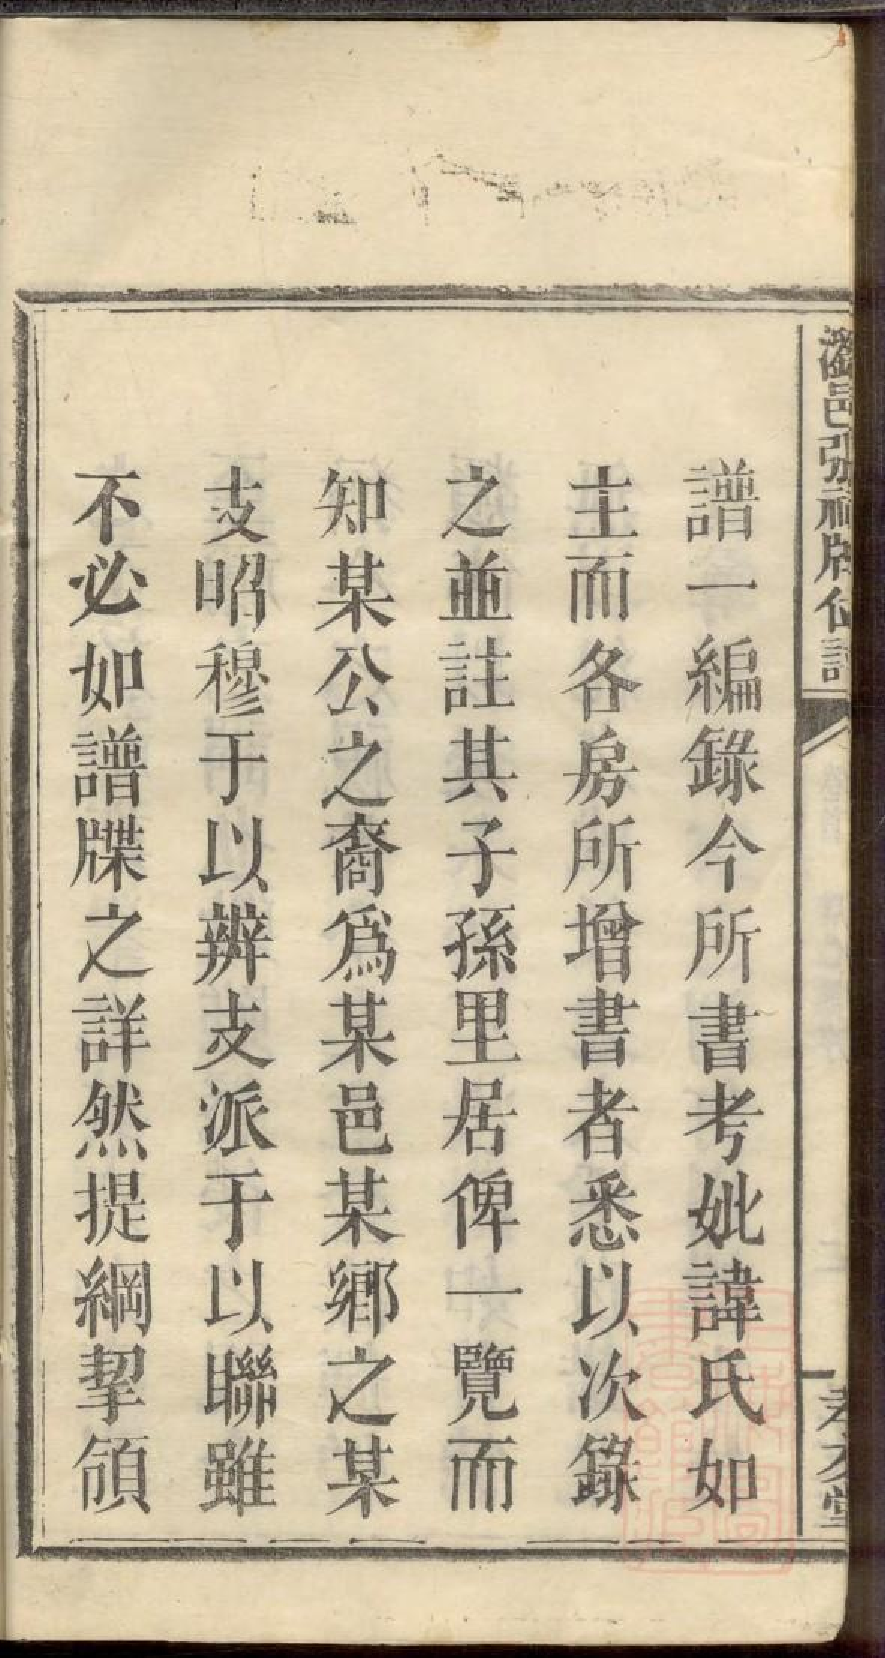 瀏邑張祠牌位譜
譜一編錄今所書考妣諱氏如
主而各房所增書者悉以次錄
之並註其子孫里居俾一覽而
知某公之裔爲某邑某鄉之某
支昭穆于以辨支派于以聯雖
不必如譜牒之詳然提綱挈領